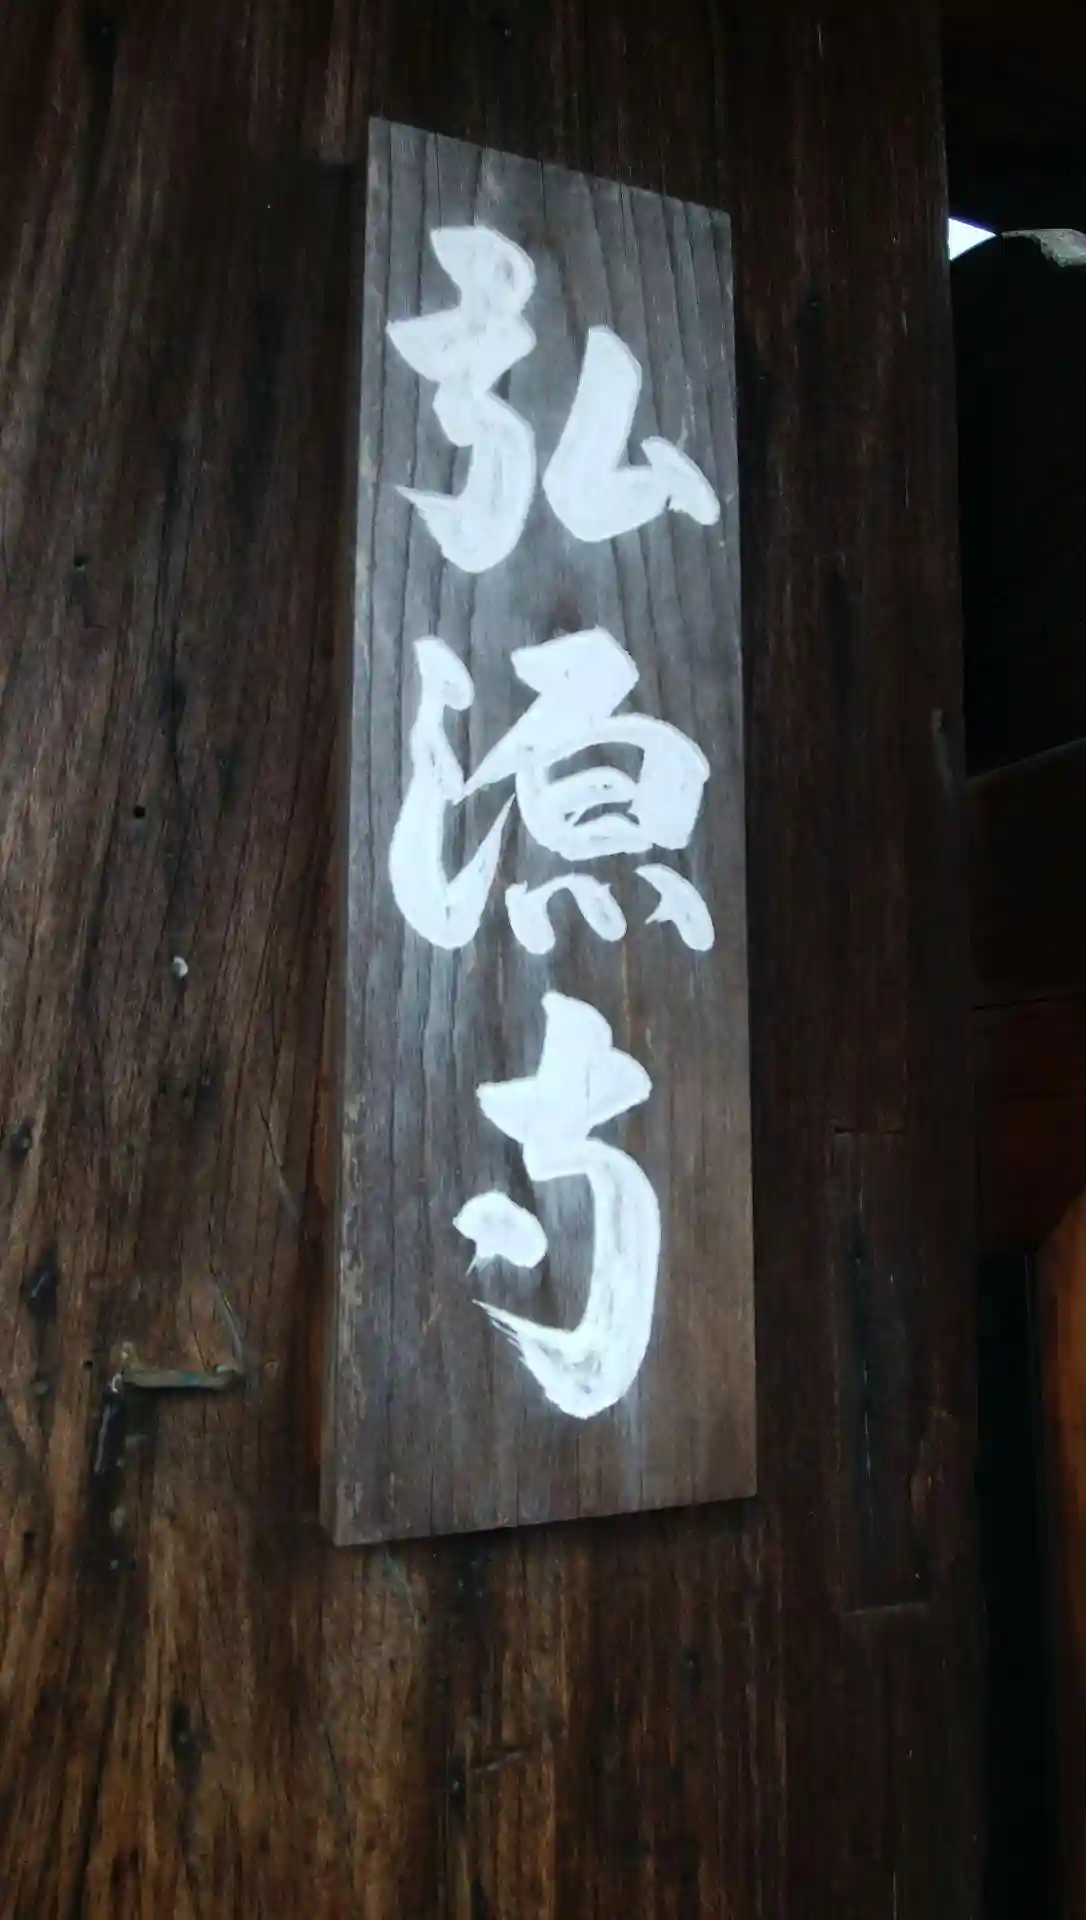 弘源寺